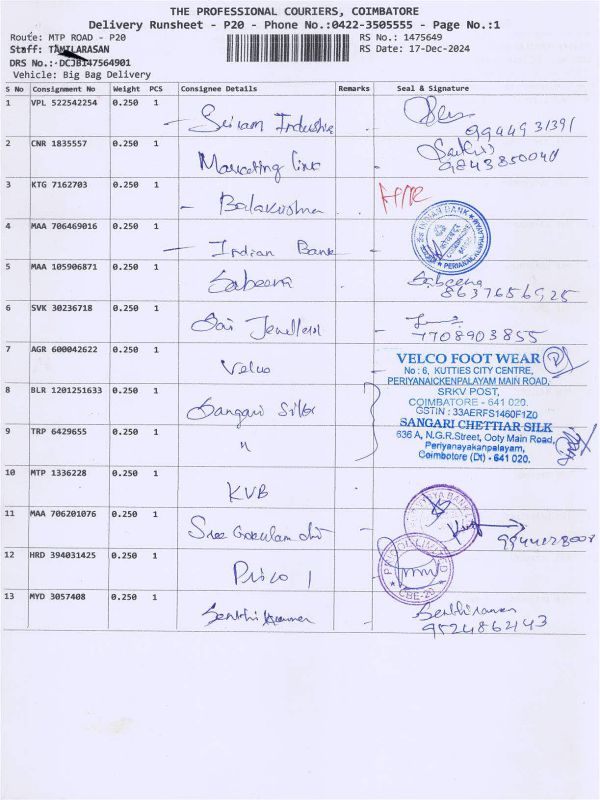 THE PROFESSIONAL COURIERS, COIMBATORE
Delivery Runsheet - P20 - Phone No.:0422-3505555 - Page No.:1
Route: MTP ROAD - P20 RS No.: 1475649
Staff: TAMILARASAN RS Date: 17-Dec-2024
DRS No.: DCJB147564901
Vehicle: Big Bag Delivery
S No Consignment No Weight PCS Consignee Details Remarks Seal & Signature
1 VPL 522542254 0.250 1 Sriram Industries
9944931391
2 CNR 1835557 0.250 1 Marketing link
9843850040
3 KTG 7162703 0.250 1 Balakrishna
4 MAA 706469016 0.250 1 Indian Bank
INDIAN BANK
5 MAA 105906871 0.250 1 Sabeena Sabeena
8637656925
6 SVK 30236718 0.250 1 Sai Jewellers
7708903855
7 AGR 600042622 0.250 1 Velco
VELCO FOOT WEAR
No : 6, KUTTIES CITY CENTRE,
PERIYANAICKENPALAYAM MAIN ROAD,
SRKV POST,
COIMBATORE - 641 020.
GSTIN : 33AERFS1460F1Z0
8 BLR 1201251633 0.250 1 Sangari Silk
SANGARI CHETTIAR SILK
636 A, N.G.R.Street, Ooty Main Road,
Periyanayakanpalayam,
Coimbatore (Dt) - 641 020.
9 TRP 6429655 0.250 1 "
10 MTP 1336228 0.250 1 KVB
11 MAA 706201076 0.250 1 Sree Gokulam chit
12 HRD 394031425 0.250 1 Prico 1
CBE-20
13 MYD 3057408 0.250 1 Senthilkumar
9524862143